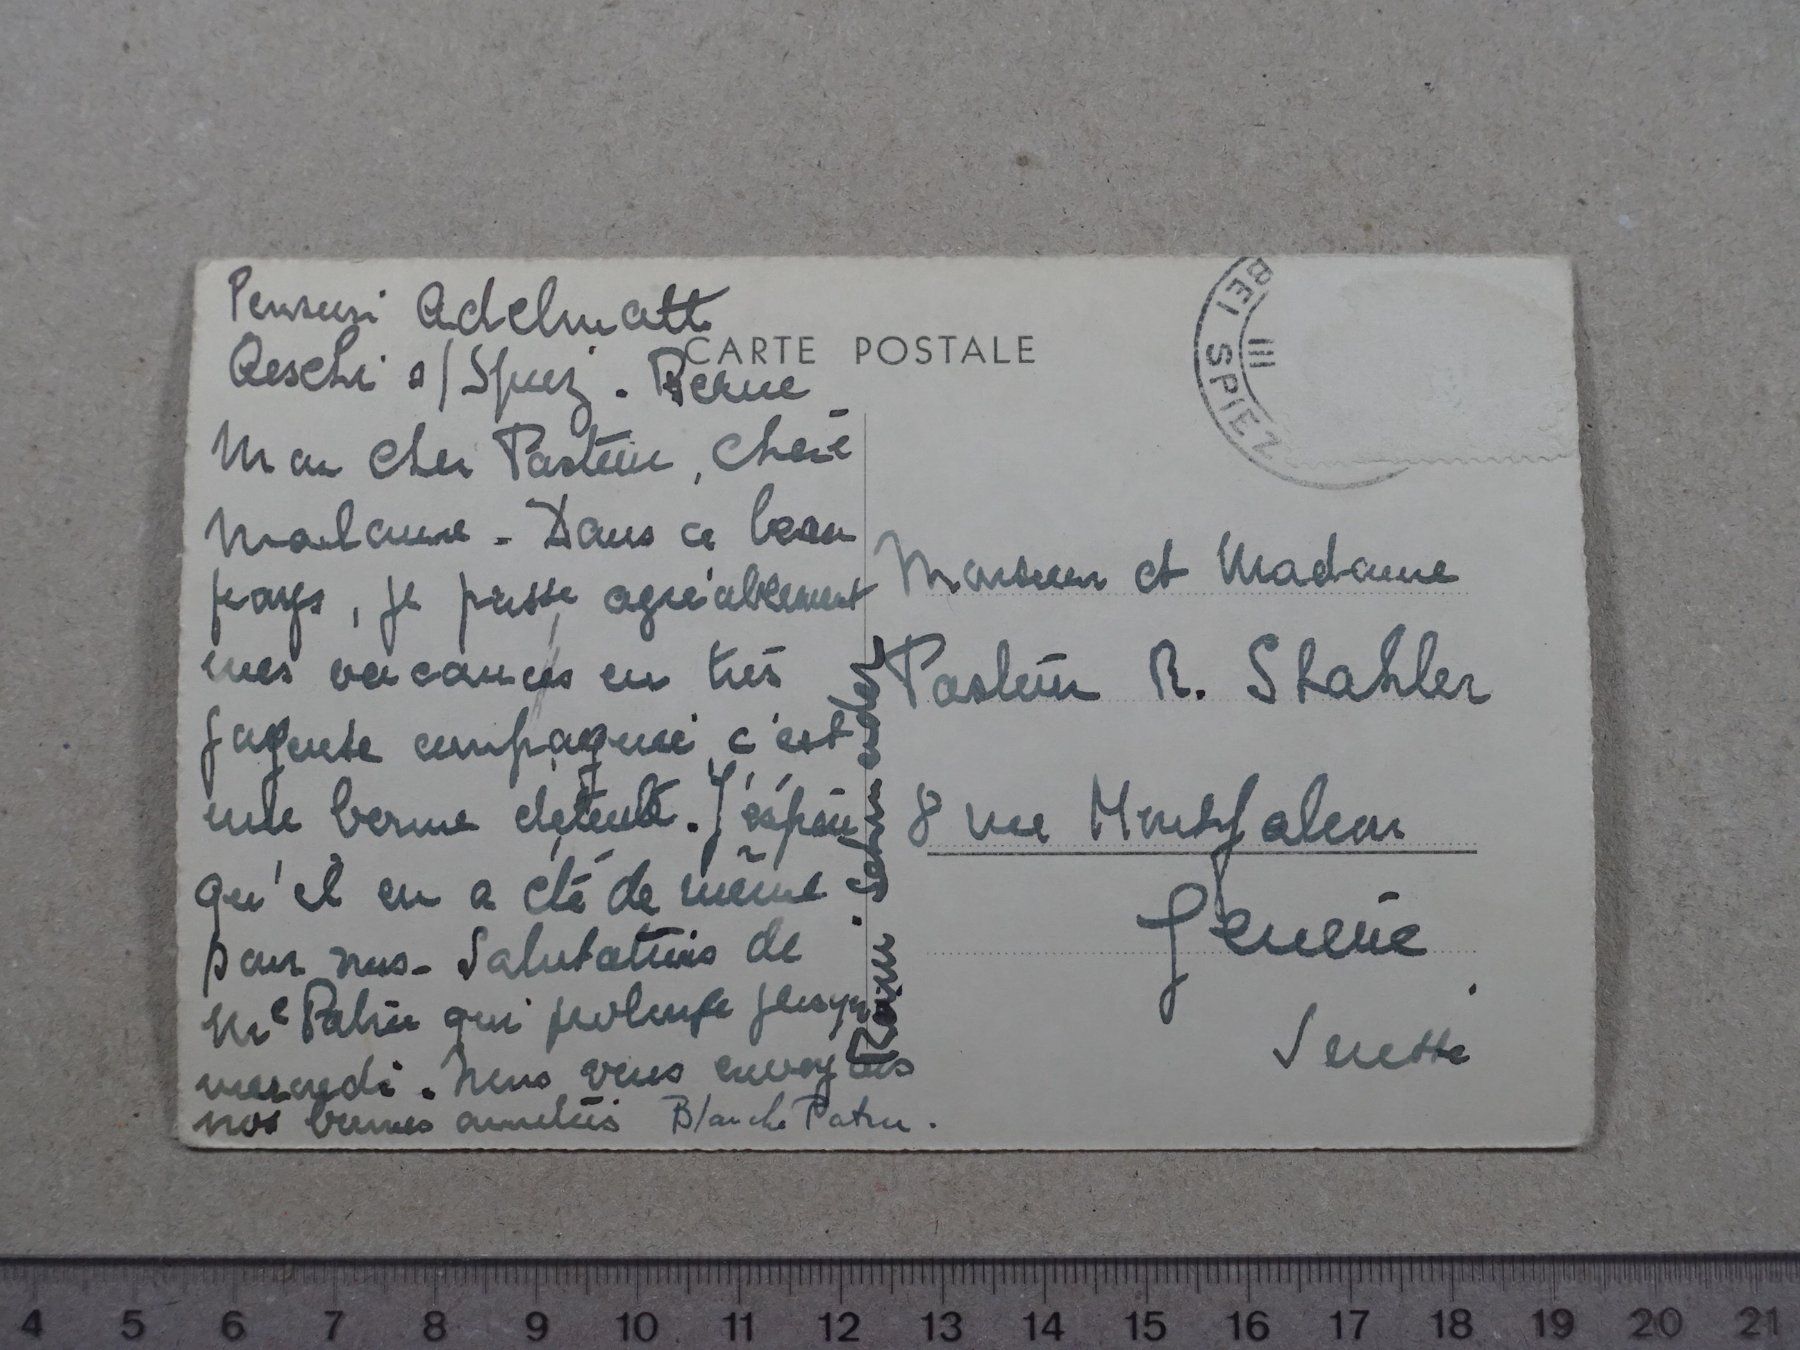 Pension Adelmatt
Aeschi s/Spiez. Berne
CARTE POSTALE
Mon cher Pasteur, chère
Madame - Dans ce beau
pays, je passe agréablement
mes vacances en très
compagnie, c'est
une bonne détente. J'espère
qu'il en a été de même
pour vous - Salutations de
Me Patru qui prolonge jusqu'à
mercredi. Nous vous envoyons
nos bonnes amitiés Blanche Patru.
BEI SPIEZ
III
Monsieur et Madame
Pasteur R. Stahler
8 rue Montfalcon
Genève
Suisse
4 5 6 7 8 9 10 11 12 13 14 15 16 17 18 19 20 21